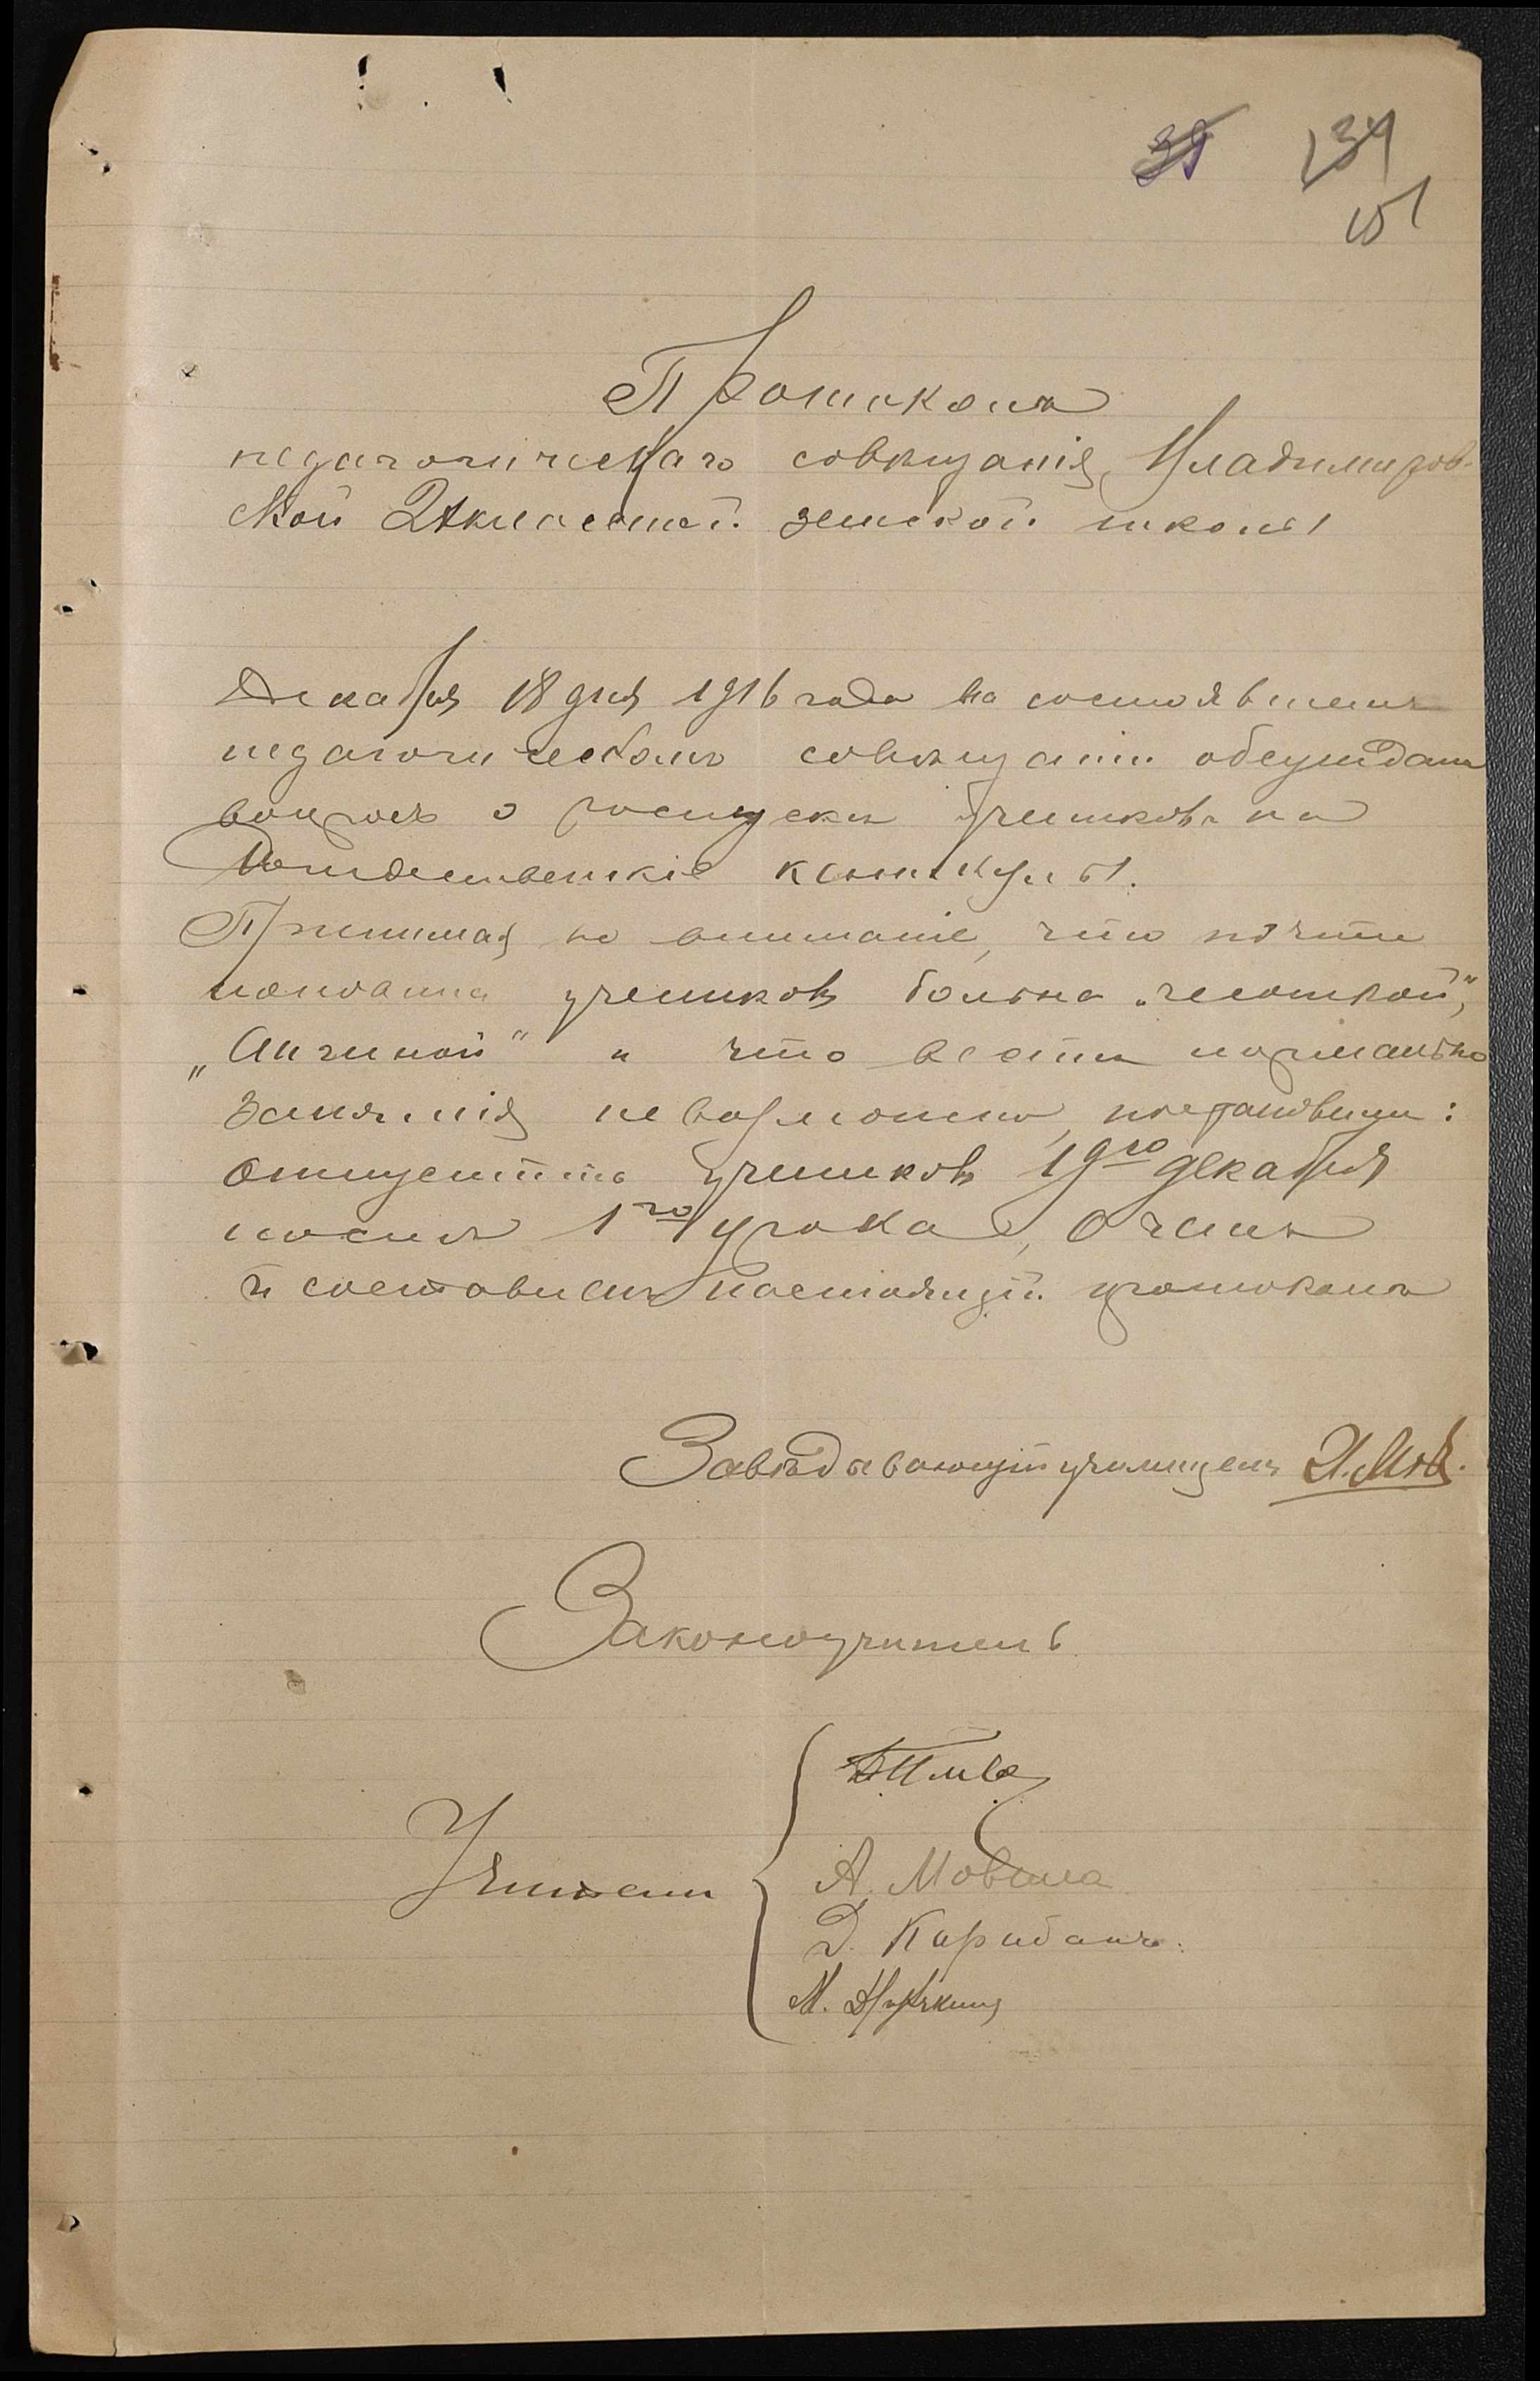 39 134
151
Протоколъ
педагогическаго совѣщанія Владимиров-
ской 2хклассной земской школы
Декабря 18 дня 1916 года на состоявшемъ
педагогическомъ совѣщаніи обсуждали
вопросъ о роспускѣ учениковъ на
Рождественскіе каникулы.
Принимая во вниманіе, что почти
половина учениковъ больна „чесоткой",
„Ангиной" и что вести нормально
занятія невозможно, постановили:
отпустить учениковъ 19го декабря
послѣ 1го урока, о чемъ
и составили настоящій протоколъ
Завѣдывающій училищемъ
Законоучитель
Учителя
А. Мовила
Д. Карибанъ.
М.